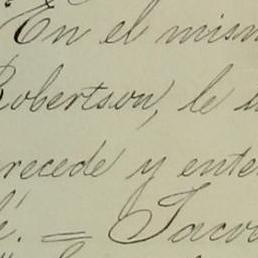 En el mism
Robertson, le i
recede y ente
é. = Jacob